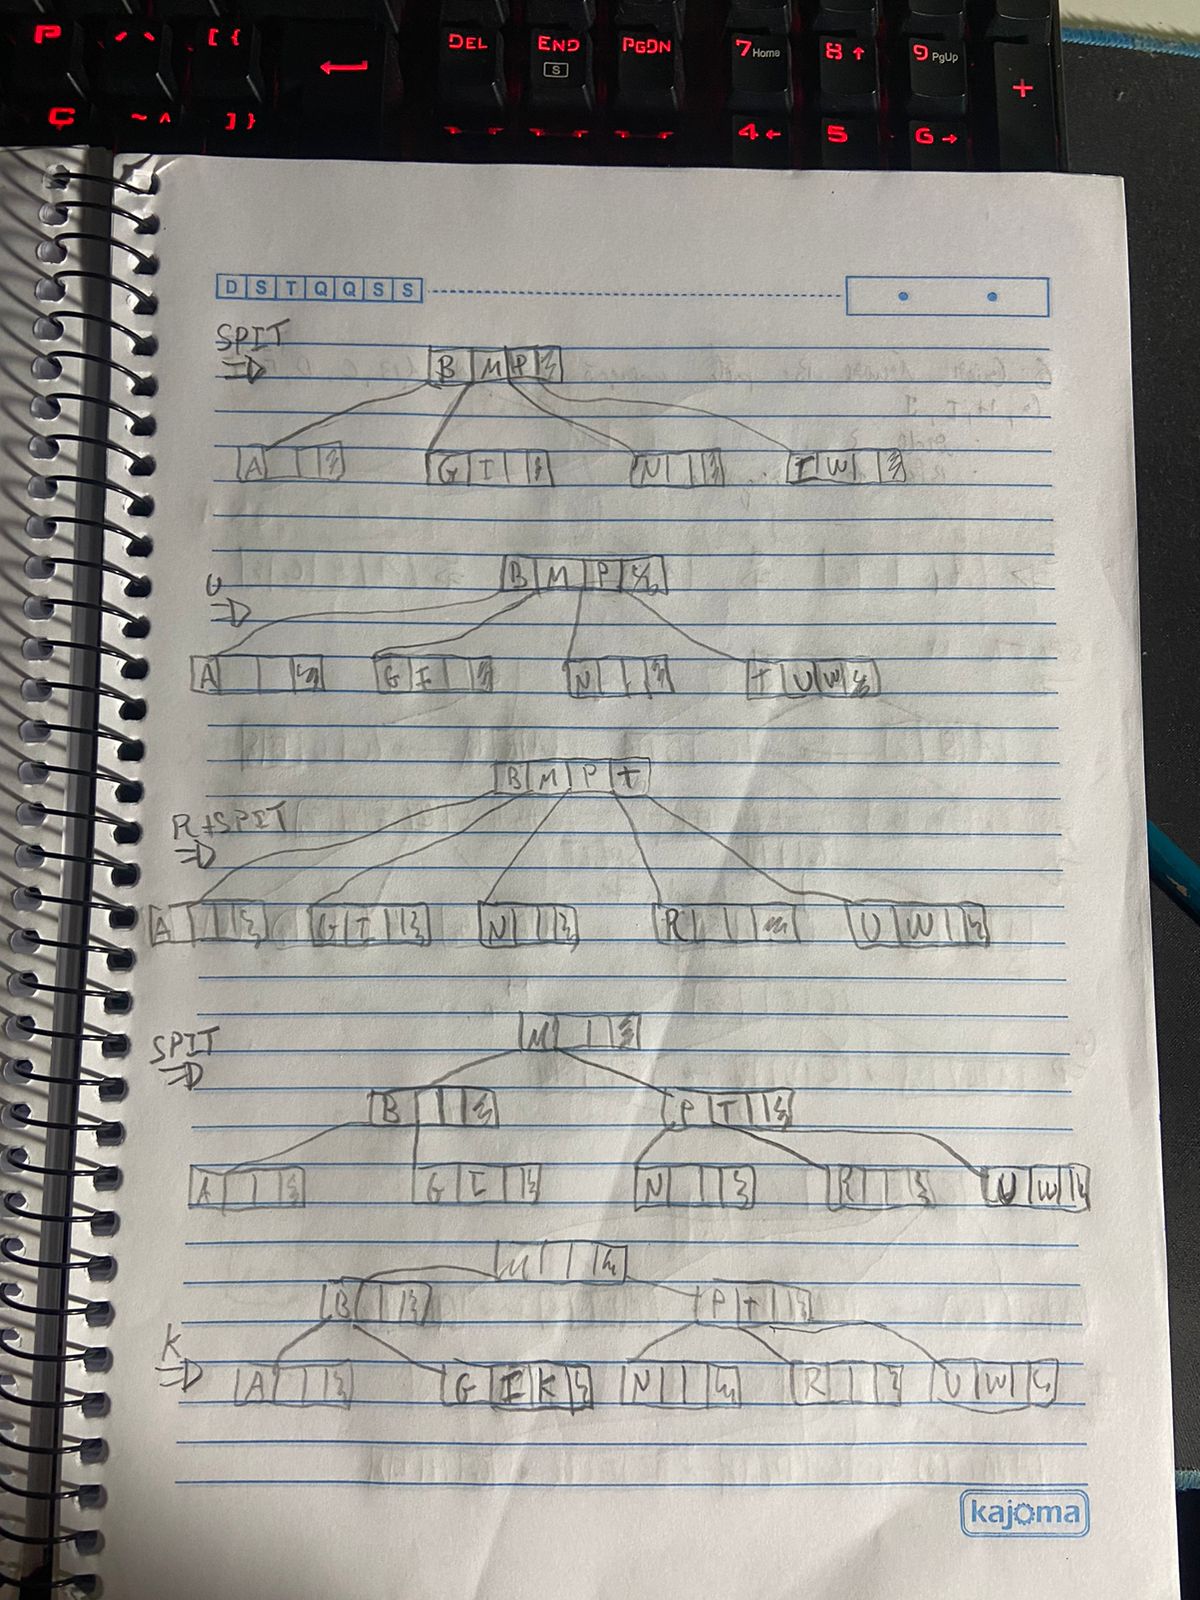 P ^ ` [ { DEL END PGDN 7 Home 8 ↑ 9 PgUp
S +
Ç ~ ^ ] } 4 ← 5 6 →
D S T Q Q S S
SPIT
⇒ B M P
A G I N T W
U B M P
⇒
A G I N T U W
B M P T
R+SPIT
⇒
A G I N R U W
M
SPIT
⇒ B P T
A G I N R U W
M
B P T
K
⇒ A G I K N R U W
kajoma